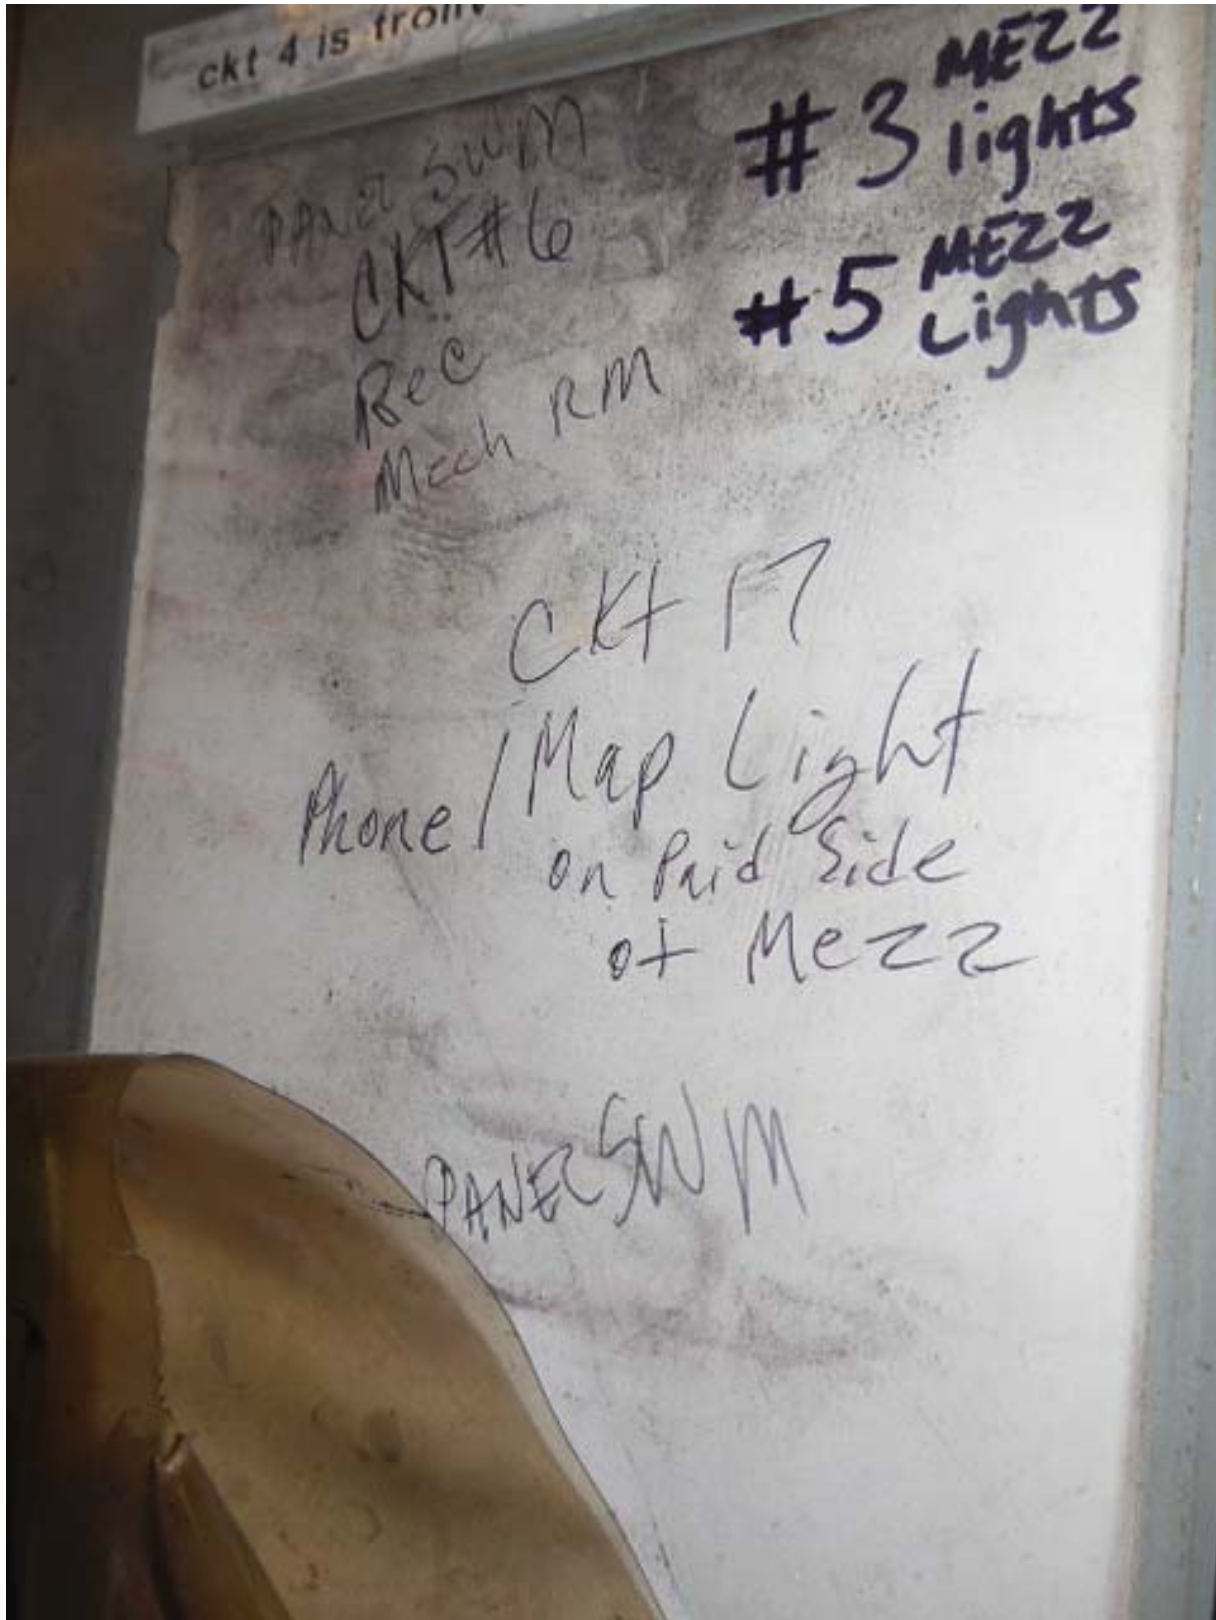 ckt 4 is
PANEL SWM
CKT #6
Rec
Mech RM
#3 MEZZ
lights
#5 MEZZ
Lights
CKt 17
Phone/Map Light
on Paid Side
of Mezz
PANEL SWM